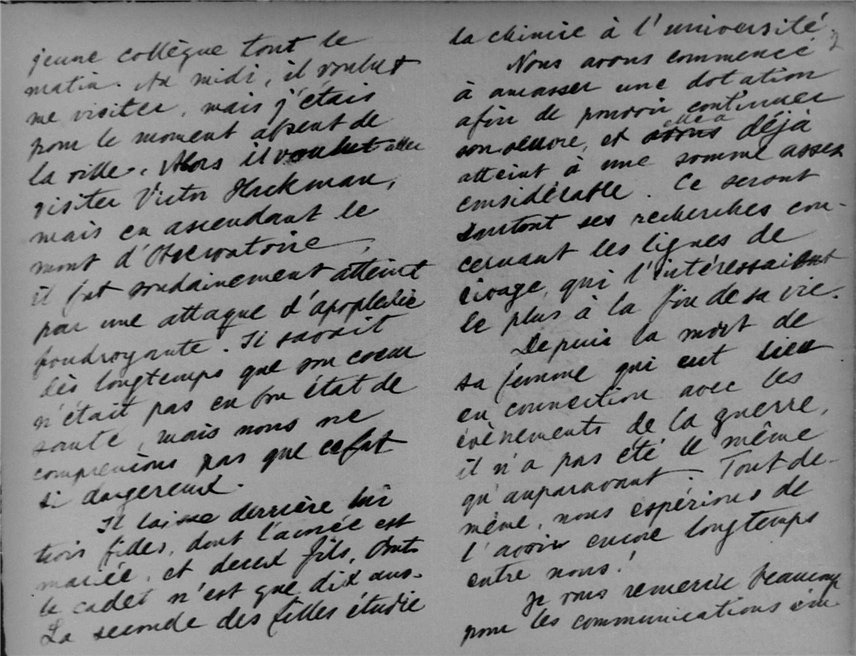 jeune collègue tout le
matin. Au midi, il voulut
me visiter, mais j'étais
pour le moment absent de
la ville. Alors il voulut aller
visiter Victor Hackman,
mais en ascendant le
mont d'Observatoire,
il fut soudainement atteint
par une attaque d'apoplexie
foudroyante. Il savait
dès longtemps que son coeur
n'était pas en bon état de
santé, mais nous ne
comprenions pas que ce fut
si dangereux.
Il laisse derrière lui
trois filles, dont l'aînée est
mariée, et deux fils, dont
le cadet n'est que dix ans.
La seconde des filles étudie
la chimie à l'université.
Nous avons commencé
à amasser une dotation
afin de pouvoir continuer
son oeuvre, et avons déjà
atteint à une somme assez
considérable. Ce seront
surtout ses recherches con-
cernant les lignes de
rivage, qui l'intéressaient
le plus à la fin de sa vie.
Depuis la mort de
sa femme qui eut lieu
en connection avec les
évènements de la guerre,
il n'a pas été le même
qu'auparavant. Tout de
même, nous espérions de
l'avoir encore longtemps
entre nous!
Je vous remercie beaucoup
pour les communications